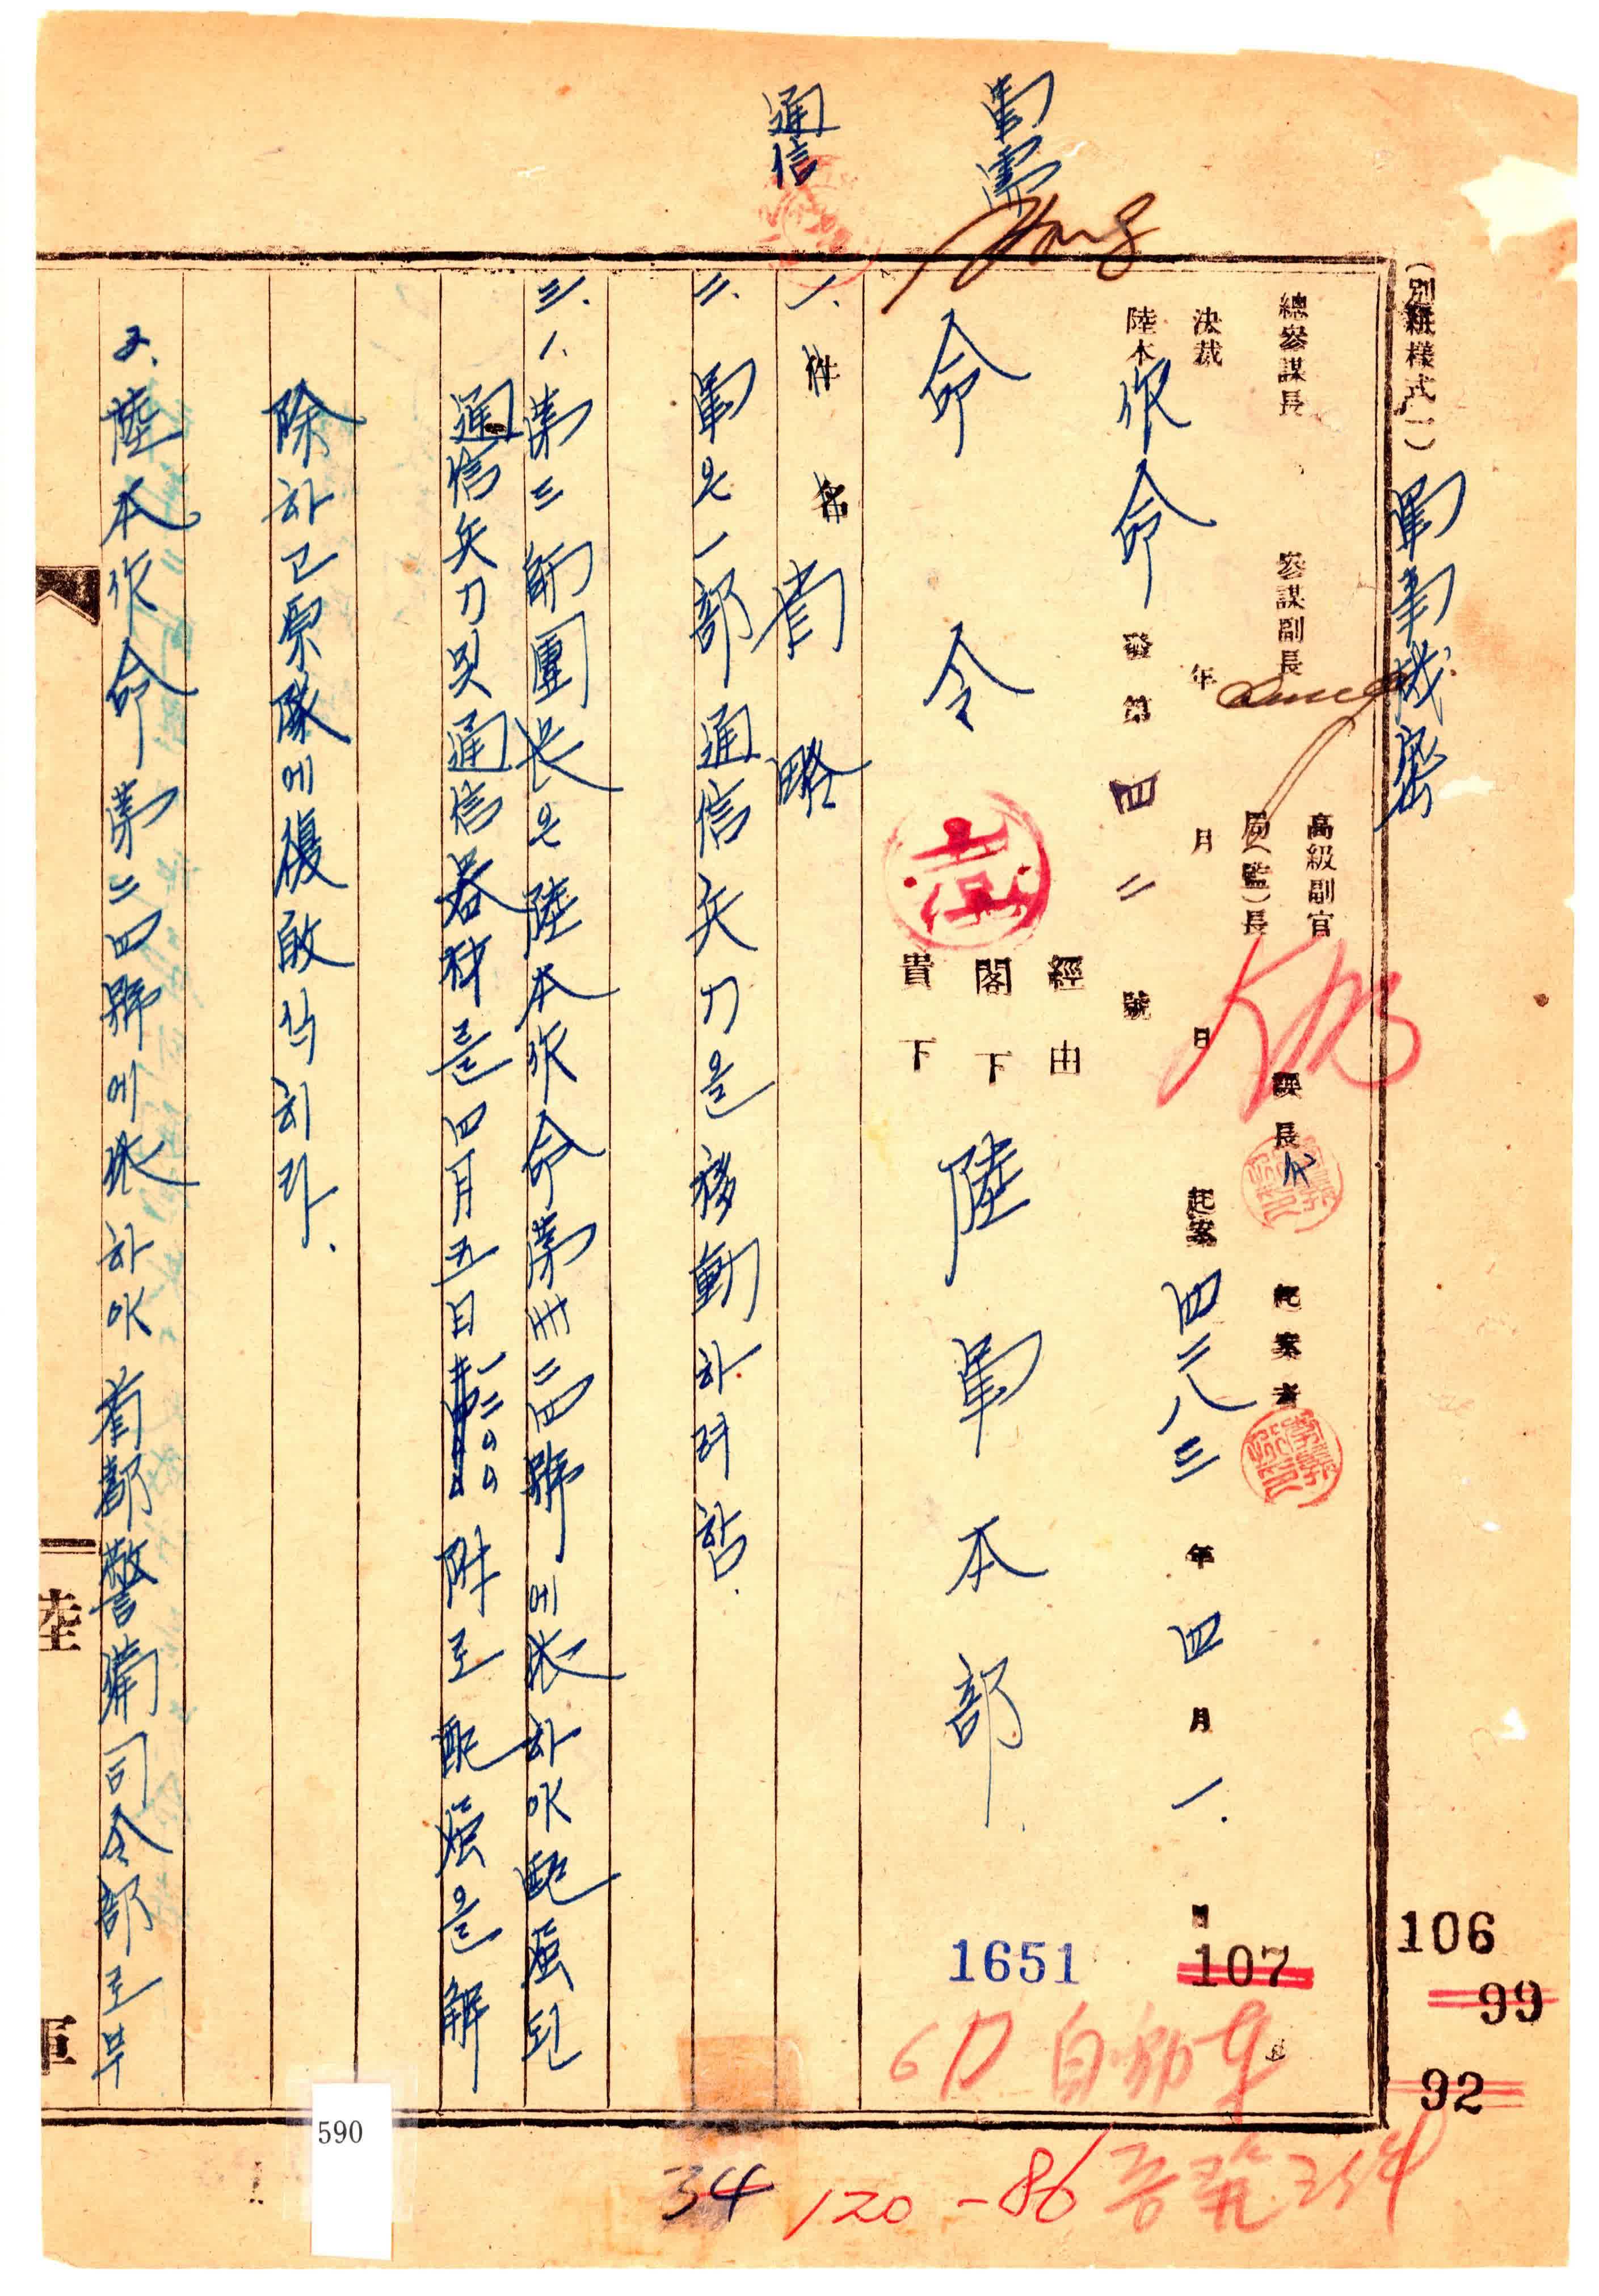 (別紙樣式一)
軍事機密
總參謀長
參謀副長
高級副官
局(監)長
課長 代
起案者
決裁 年 月 日
起案 四二八三年四月一
陸本作命發第四二號
經由
閣下
貴下
命令
陸軍本部
通信
一. 件名 省略
二. 軍은 一部 通信兵力을 移動하려함.
三. 1. 第三師團長은 陸本作命第卅二四號에依하야 配屬된
通信兵力및 通信器材를 四月五日 一二00 附로 配屬을 解
除하고 原隊에 復敀식히라.
2. 陸本作命第二四號에依하야 首都警備司令部로부
陸
軍
106
107
99
92
1651
自動車
34
120-86
590